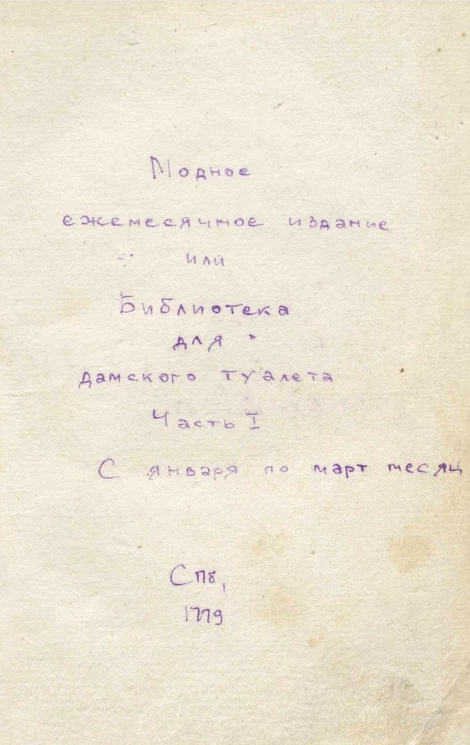 Модное
ежемесячное издание
или
Библиотека
для
дамского туалета
Часть I
С января по март месяц
Спб,
1779